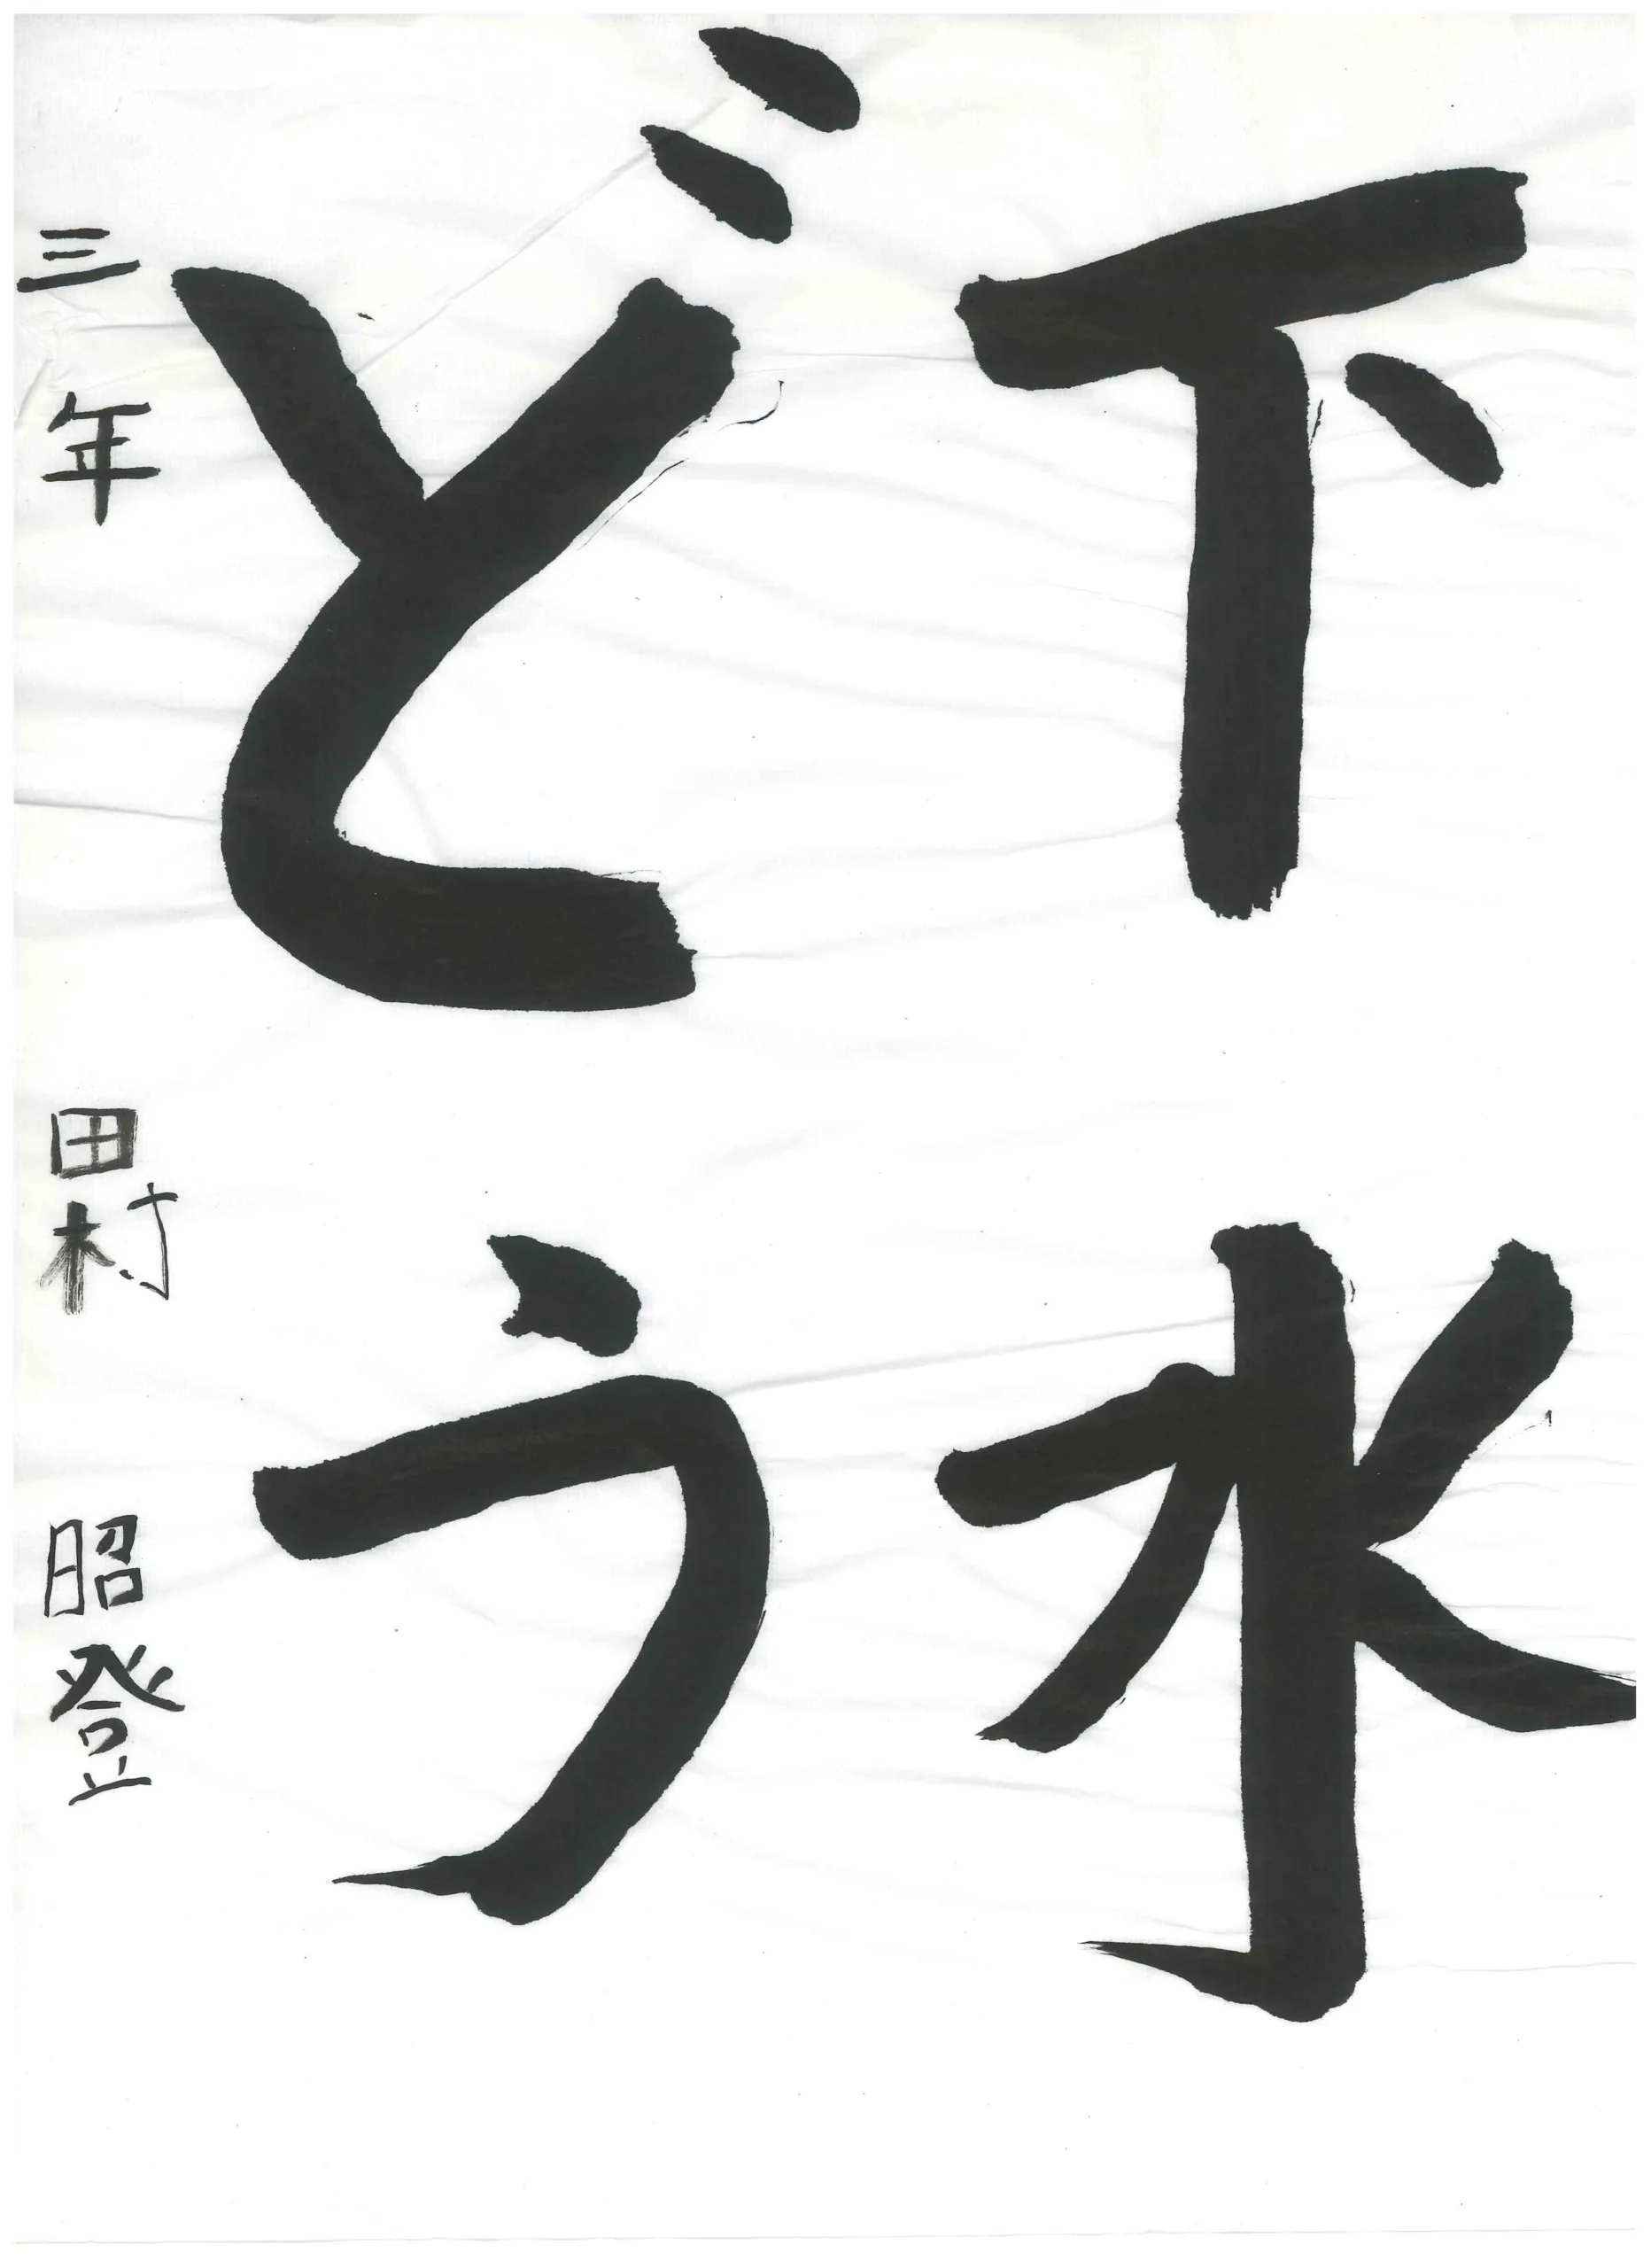 下水
どう
三年 田村 昭登